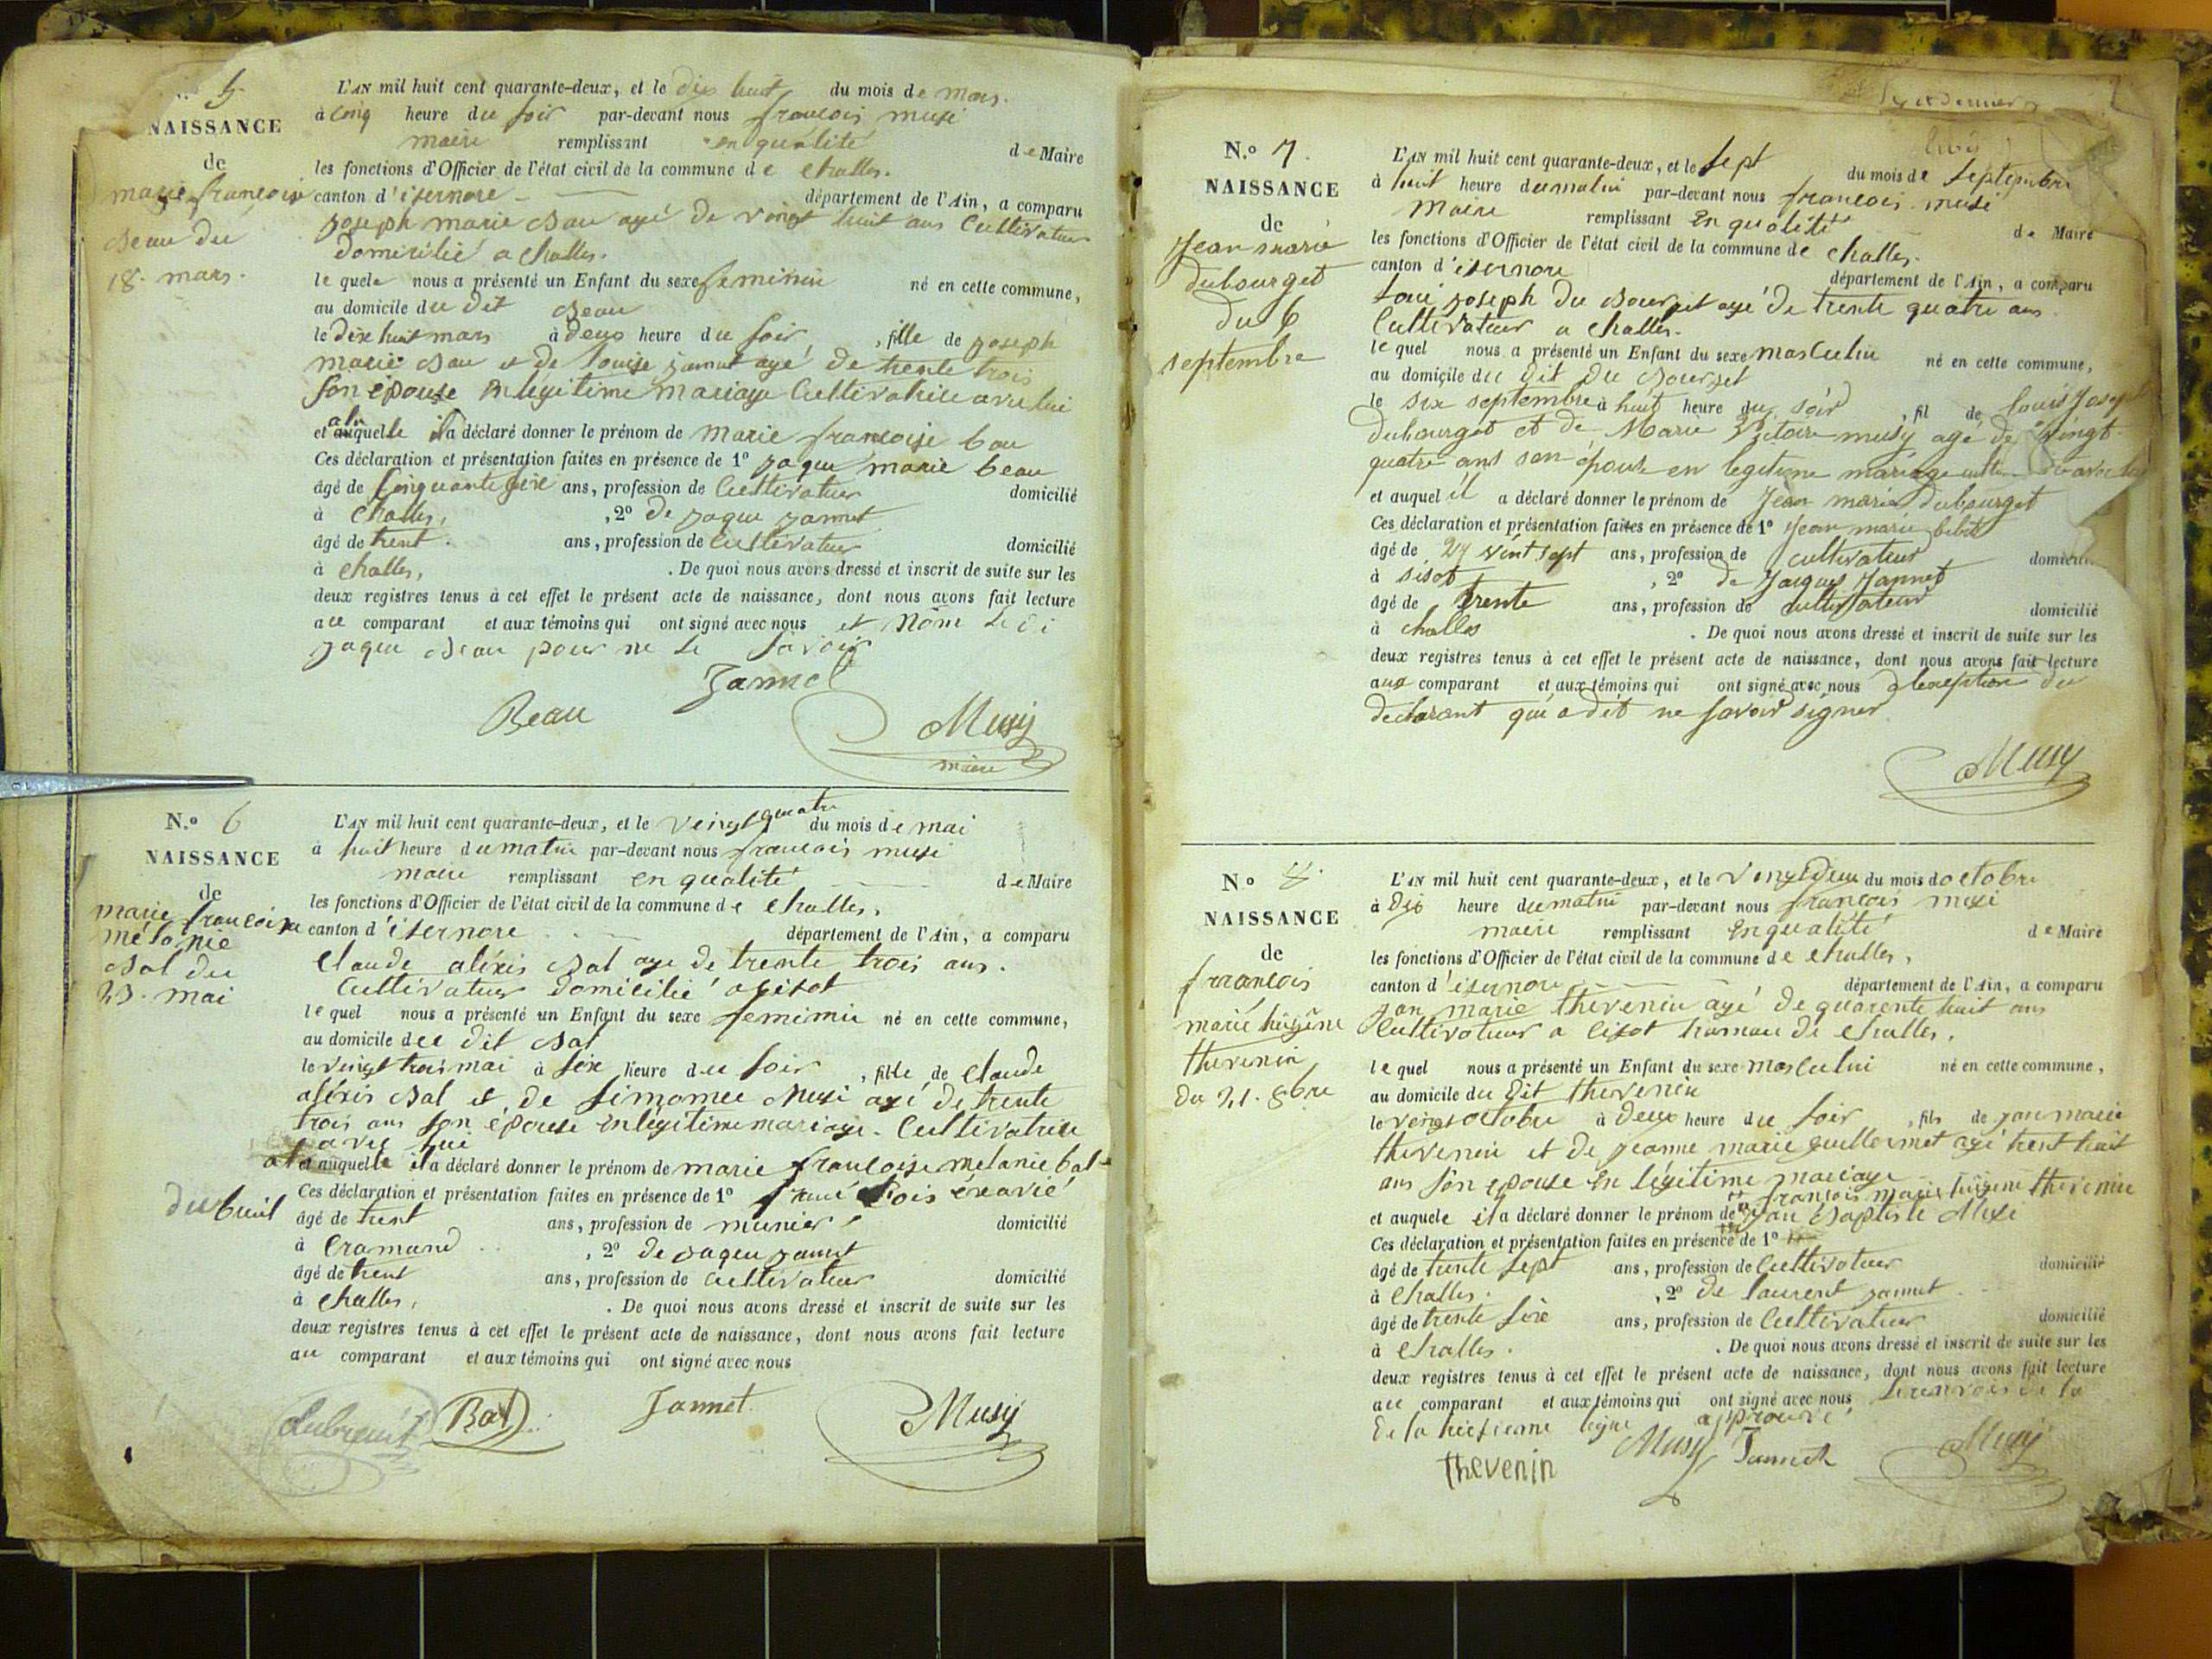 5.
NAISSANCE
de
marie françoise
Beau du
18. mars.
L'AN mil huit cent quarante-deux, et le dix huit du mois de mars.
à cinq heure du soir par-devant nous françois musi
maire remplissant en qualité de Maire
les fonctions d'Officier de l'état civil de la commune de challes.
canton d'isernore département de l'Ain, a comparu
joseph marie Bau agé de vingt huit ans Cultivateur
domicilié a challes.
le quele nous a présenté un Enfant du sexe feminin né en cette commune,
au domicile du dit Beau
le dix huit mars à deux heure du soir, fille de joseph
marie Bau et de louise jannet agé de trente trois
son épouse en legitime mariage Cultivatrice avec lui
et auquelle il a déclaré donner le prénom de marie françoise bau
Ces déclaration et présentation faites en présence de 1° jaque marie beau
âgé de cinquante six ans, profession de Cultivateur domicilié
à challes, , 2° de jaque jannet
âgé de trent ans, profession de Cultivateur domicilié
à challes, . De quoi nous avons dressé et inscrit de suite sur les
deux registres tenus à cet effet le présent acte de naissance, dont nous avons fait lecture
au comparant et aux témoins qui ont signé avec nous et non le di
jaque Beau pour ne le savoir
Jannet
Beau Musy
maire
N.° 6
NAISSANCE
de
marie françoise
mélanie
Bal du
23. mai
L'AN mil huit cent quarante-deux, et le vingt quatre du mois de mai
à huit heure du matin par-devant nous françois musi
maire remplissant en qualité de Maire
les fonctions d'Officier de l'état civil de la commune de challes.
canton d'isernore département de l'Ain, a comparu
Claude aléxis Bal age de trente trois ans.
Cultivateur domicilié a cisot
le quel nous a présenté un Enfant du sexe feminin né en cette commune,
au domicile du dit Bal
le vingt trois mai à six heure du soir, fille de claude
aléxis Bal et de simonne Musi agé de trente
trois ans son épouse en légitime mariage. Cultivatrice
avec lui
et auquelle il a déclaré donner le prénom de marie françoise melanie bal
Ces déclaration et présentation faites en présence de 1°
dubreuil
âgé de trent ans, profession de munier domicilié
à Cramand , 2° de jaque jannet
âgé de trent ans, profession de Cultivateur domicilié
à challes, . De quoi nous avons dressé et inscrit de suite sur les
deux registres tenus à cet effet le présent acte de naissance, dont nous avons fait lecture
au comparant et aux témoins qui ont signé avec nous
Dubreuil Bal Jannet Musy
N.° 7.
NAISSANCE
de
Jean marie
dubourget
du 6
septembre
L'AN mil huit cent quarante-deux, et le sept du mois de septembre
à huit heure du matin par-devant nous françois musi
Maire remplissant en qualité de Maire
les fonctions d'Officier de l'état civil de la commune de challes.
canton d'isernore département de l'Ain, a comparu
Loui joseph du Bourget agé de trente quatre ans
Cultivateur a challes.
le quel nous a présenté un Enfant du sexe masculin né en cette commune,
au domicile du dit du Bourget
le six septembre à huit heure du soir, fil de louis joseph
dubourget et de Marie Victoire musy agé de vingt
quatre ans son épouse en legitime mariage avec lui
et auquel il a déclaré donner le prénom de Jean marie Dubourget
Ces déclaration et présentation faites en présence de 1° Jean marie
âgé de 27 vint sept ans, profession de cultivateur
à sisot , 2° de Jacques Jannet
âgé de trente ans, profession de cultivateur domicilié
à challes . De quoi nous avons dressé et inscrit de suite sur les
deux registres tenus à cet effet le présent acte de naissance, dont nous avons fait lecture
aux comparant et aux témoins qui ont signé avec nous a l'exception du
declarant qui a dit ne savoir signer
Musy
N.° 8.
NAISSANCE
de
françois
marie higéne
thevenin
du 21. 8bre
L'AN mil huit cent quarante-deux, et le vingt deux du mois doctobre
à dix heure du matin par-devant nous françois musi
maire remplissant en qualité de Maire
les fonctions d'Officier de l'état civil de la commune de challes,
canton d'isernore département de l'Ain, a comparu
jan marie thevenin agé de quarente huit ans
Cultivateur a cisot hamau de challes,
le quel nous a présenté un Enfant du sexe masculin né en cette commune,
au domicile du dit thevenin
le vingt octobre à deux heure du soir, fils de jan marie
thevenin et de jeanne marie guillermet agé trent huit
ans son épouse en légitime mariage
françois marie higene thevenin
et auquele il a déclaré donner le prénom de jan Baptiste Musi
Ces déclaration et présentation faites en présence de 1°
âgé de trente sept ans, profession de Cultivateur domicilié
à challes. , 2° de laurent jannet
âgé de trente six ans, profession de Cultivateur domicilié
à challes. . De quoi nous avons dressé et inscrit de suite sur les
deux registres tenus à cet effet le présent acte de naissance, dont nous avons fait lecture
au comparant et aux témoins qui ont signé avec nous
ligne approuvé
thevenin Musy Jannet Musy